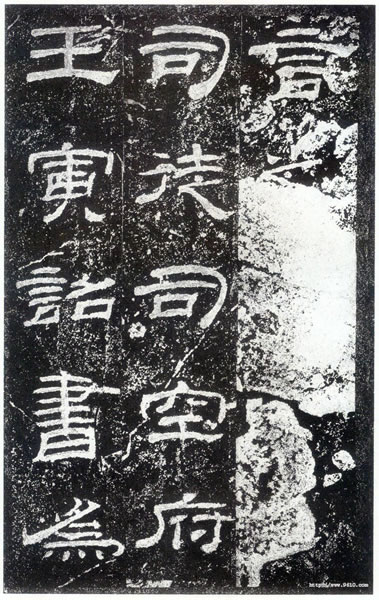 言之
司徒司空府
壬寅詔書為
http://www.9610.com